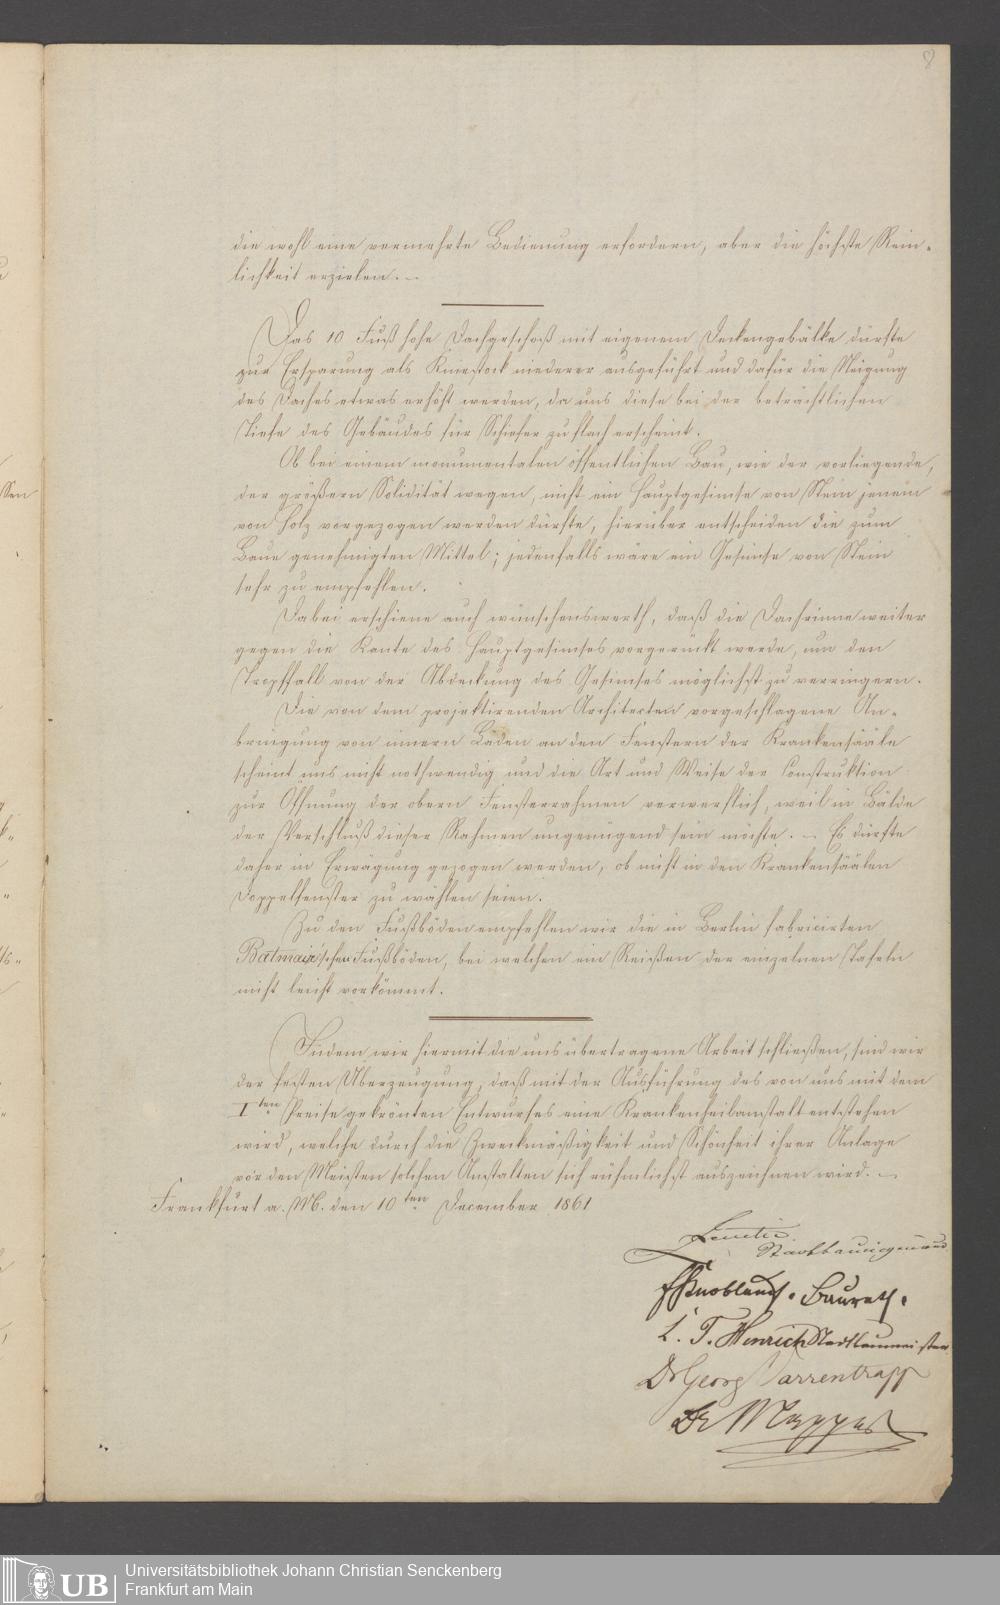 8
die wohl eine vermehrte Bedienung erfordern, aber die höchste Rein-
lichkeit erzielen. –
Das 10 Fuß hohe Dachgeschoß mit eigenem Deckengebälke dürfte
zur Ersparung als Kniestock niederer ausgeführt und dafür die Neigung
des Daches etwas erhöht werden, da uns diese bei der beträchtlichen
Tiefe des Gebäudes für Schiefer zu flach erscheint.
Ob bei einem monumentalen öffentlichen Bau, wie der vorliegende,
der größern Solidität wegen, nicht ein Hauptgesimse von Stein jenem
von Holz vorgezogen werden dürfte, hierüber entscheiden die zum
Baue genehmigten Mittel; jedenfalls wäre ein Gesimse von Stein
sehr zu empfehlen.
Dabei erschiene auch wünschenswerth, daß die Dachrinne weiter
gegen die Kante des Hauptgesimses vorgerückt werde, um den
Tropffall von der Abdeckung des Gesimses möglichst zu verringern.
Die von dem projektirenden Architecten vorgeschlagene An-
bringung von innern Läden an den Fenstern der Krankensääle
scheint uns nicht nothwendig und die Art und Weise der Construktion
zur Öffnung der obern Fensterrahmen verwerflich, weil in Bälde
der Verschluß dieser Rahmen ungenügend sein möchte. – Es dürfte
daher in Erwägung gezogen werden, ob nicht in den Krankensäälen
Doppelfenster zu wählen seien.
Zu den Fußböden empfehlen wir die in Berlin fabricirten
Batmair'schen Fußböden, bei welchen ein Reißen der einzelnen Tafeln
nicht leicht vorkömmt.
Indem wir hiermit die uns übertragene Arbeit schließen, sind wir
der festen Überzeugung, daß mit der Ausführung des von uns mit dem
Iten Preise gekrönten Entwurfes eine Krankenheilanstalt entstehen
wird, welche durch die Zweckmäßigkeit und Schönheit ihrer Anlage
vor den Meisten solchen Anstalten sich rühmlichst auszeichnen wird. –
Frankfurt a. M. den 10ten December 1861
Stadtbau
Knoblauch. Baurath.
L. T. Henrich Stadtbaumeister
Dr Georg Varrentrapp
Dr Mappes
UB
Universitätsbibliothek Johann Christian Senckenberg
Frankfurt am Main